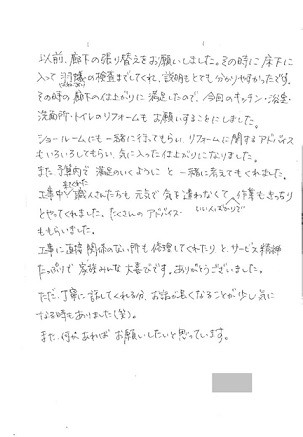 以前、廊下の張り替えをお願いしました。その時に床下に
入って羽蟻の検査までしてくれ、説明もとても分かりやすかったです。
その時の廊下の仕上がりに満足したので、今回のキッチン・浴室・
洗面所・トイレのリフォームもお願いすることにしました。
ショールームにも一緒に行ってもらい、リフォームに関するアドバイス
もいろいろしてもらい、気に入った仕上がりになりました。
また予算内で満足のいくようにと一緒に考えてもくれました。
工事中来てくれた職人さんたちも元気で気を遣わなくていい人ばかりで作業もきっちり
とやってくれました。たくさんのアドバイス
ももらいました。
工事に直接関係のない所も修理してくれたりとサービス精神
たっぷりで家族みんな大喜びです。ありがとうございました。
ただ、丁寧に話してくれる分、お話が長くなることが少し気に
なる時もありました(笑)。
また、何かあればお願いしたいと思っています。